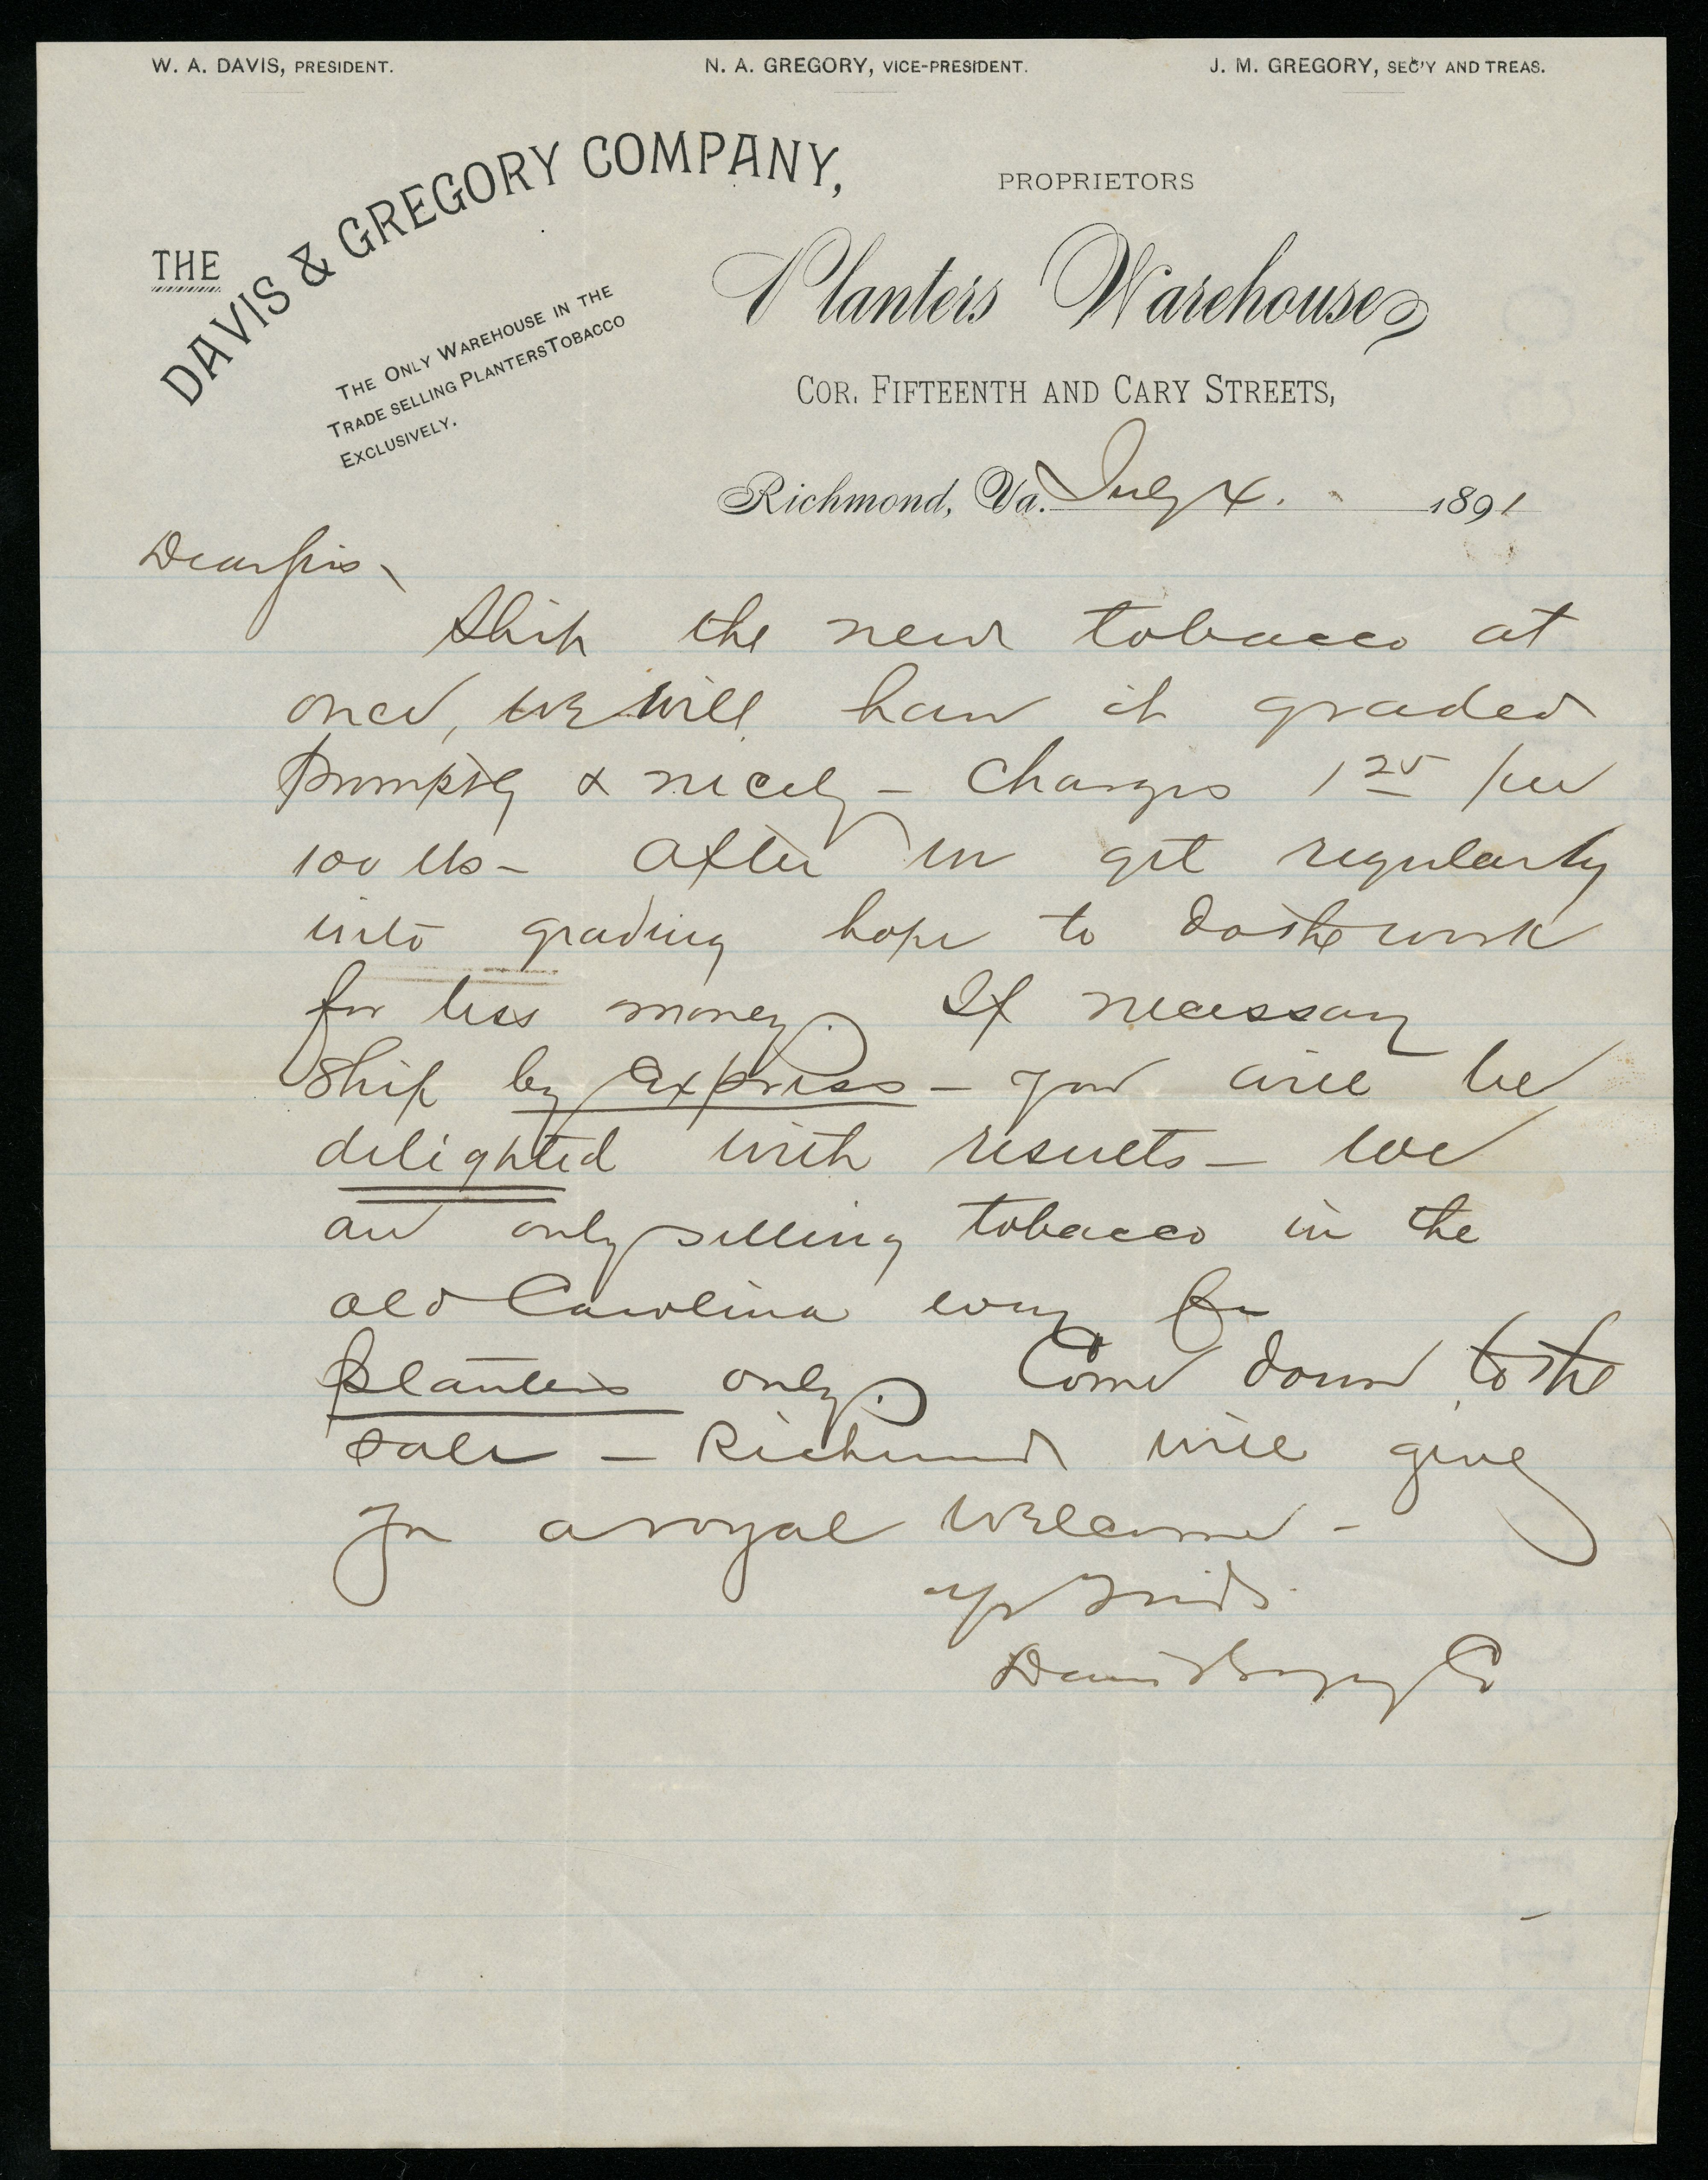 W. A. DAVIS, PRESIDENT.
N. A. GREGORY, VICE-PRESIDENT.
J. M. GREGORY, SEC'Y AND TREAS.
THE
DAVIS & GREGORY COMPANY,
THE ONLY WAREHOUSE IN THE
TRADE SELLING PLANTERS TOBACCO
EXCLUSIVELY.
PROPRIETORS
Planters Warehouse
COR. FIFTEENTH AND CARY STREETS,
Richmond, Va. July 4. 1891
Dear Sirs -
Ship the new tobacco at
once, we will have it graded
promptly & nicely - Charges 1 25 per
100 lbs - After we get regularly
into grading hope to do the work
for less money. If necessary
ship by express - you will be
delighted with results - We
are only selling tobacco in the
old Carolina way for
planters only. Come down to the
sale - Richmond will give
you a royal welcome -
Yr Friends
Davis Gregory Co